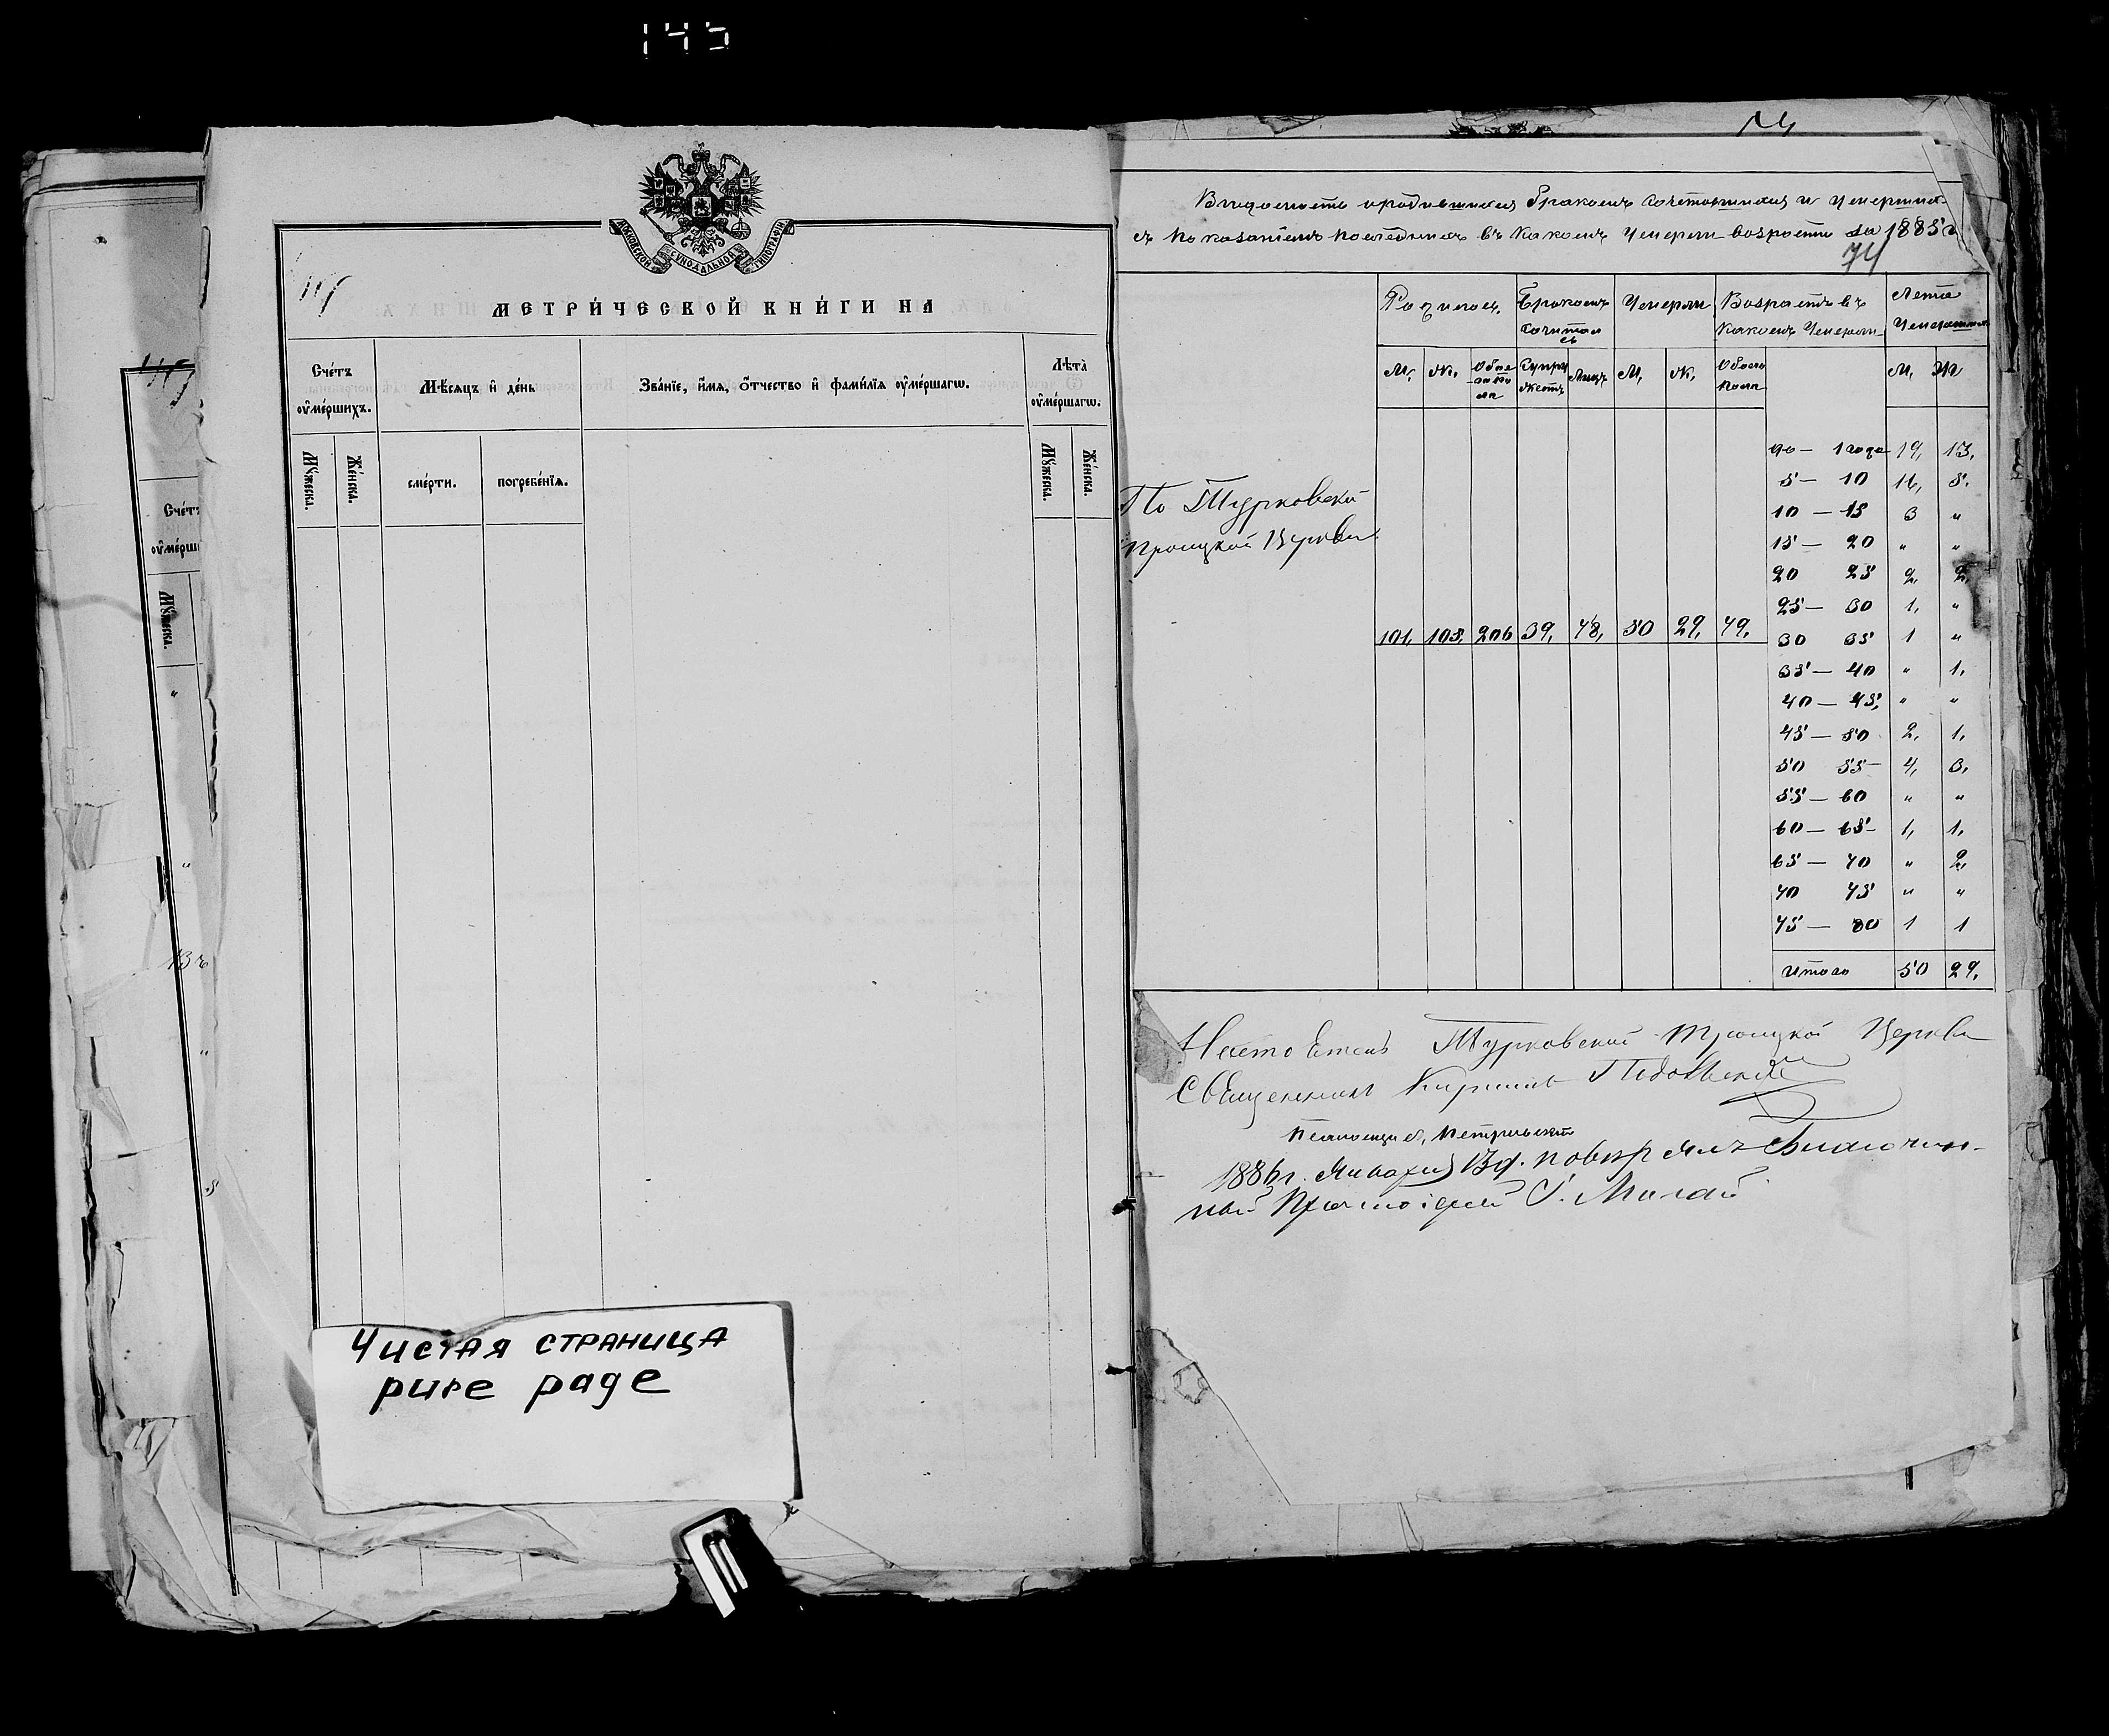 145
МОСКОВСКОЙ СѴНОДАЛЬНОЙ ТИПОГРАФІИ
МЕТРИ́ЧЕСКОЙ КНИ́ГИ НА
Сче́тъ оу҆ме́ршихъ.
Мѣ́сяцъ и҆ де́нь
Зва́нїе, и҆́мя, ѻ҆́тчество и҆ фами́лїя оу҆ме́ршагѡ.
Лѣта̀ оу҆ме́ршагѡ.
Мꙋ́жеска.
Же́нска.
сме́рти.
погребе́нїя.
Мꙋ́жеска.
Же́нска.
Чистая страница
pure page
Вѣдомость о родившихся бракомъ сочетавшихся и умершихъ
съ показаніемъ последнихъ въ какомъ умерли возрасте за 1885 г
74
Родилось
Бракомъ сочитались
Умерли
Возрастъ въ какомъ умерли
Лета умершихъ
М. Ж. Обоего пола Супружествъ Лицъ М. Ж. Обоего пола М. Ж
По Турковской
Троицкой Церкви
101, 105, 206 39, 78, 50 29, 79,
до — 1 года 19, 13,
5 — 10 16, 5.
10 — 15 3 "
15 — 20 " "
20 25 2, 2,
25 — 30 1, "
30 35 1 "
35 — 40 " 1,
40 — 45, " "
45 — 50 2, 1,
50 55 4, 3,
55 — 60 " "
60 — 65 1, 1,
65 — 70 " 2,
70 75 " "
75 — 80 1 1
Итого 50 29,
Настоятель Турковской Троицкой Церкви
Священникъ Кириллъ
Псаломщикъ
1886 г. Января поверялъ Благочин-
ный Протоіерей